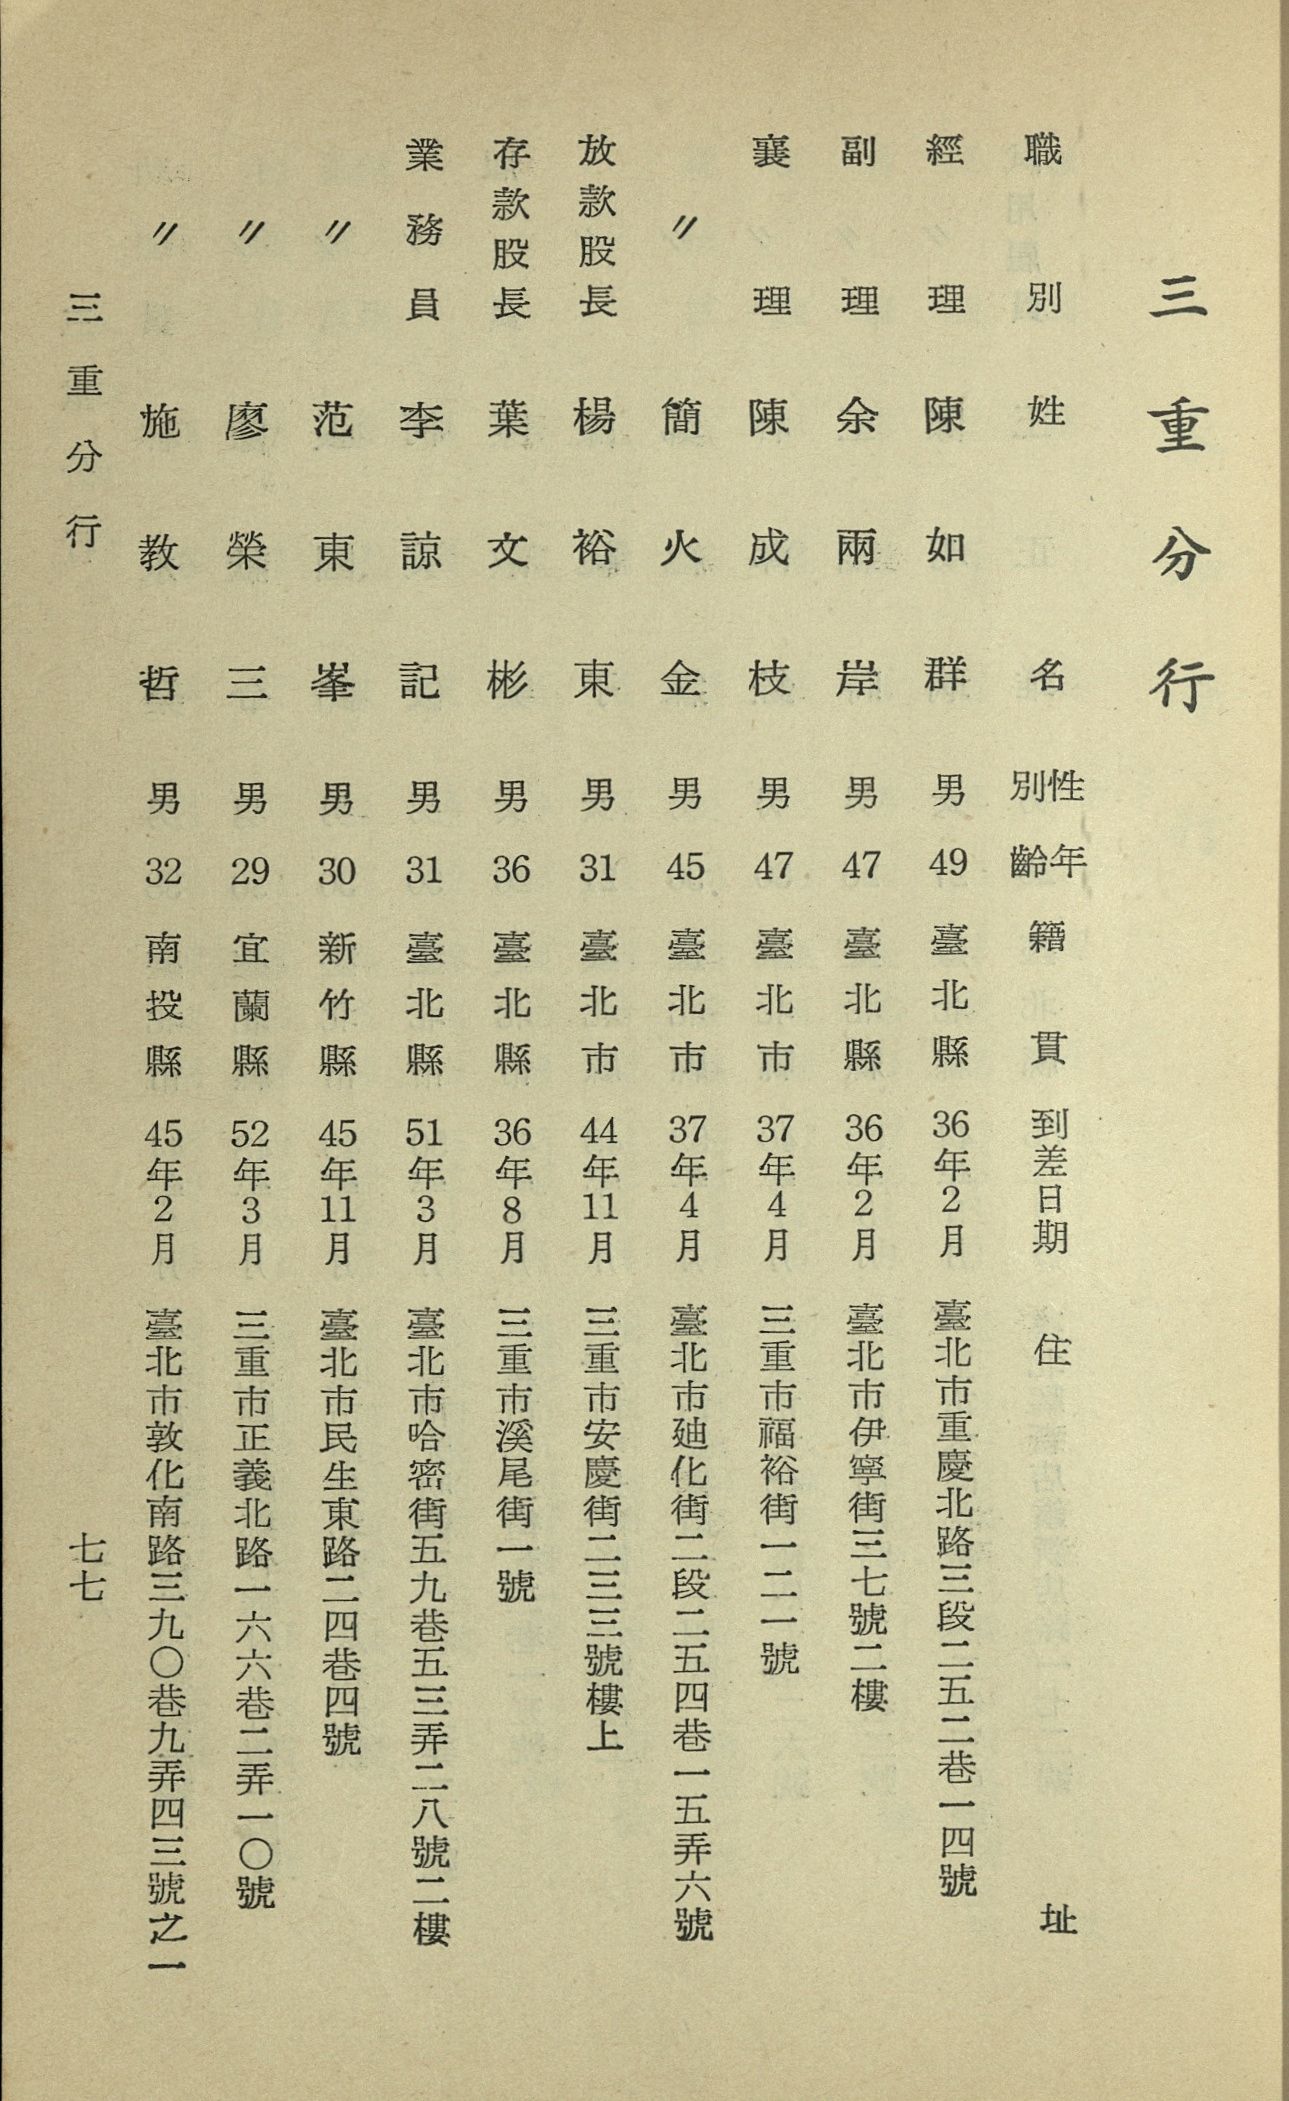 三重分行
職別 姓名 性別 年齡 籍貫 到差日期 住址
經理 陳如群 男 49 臺北縣 36年2月 臺北市重慶北路三段二五二巷一四號
副理 余兩岸 男 47 臺北縣 36年2月 臺北市伊寧街三七號二樓
襄理 陳成枝 男 47 臺北市 37年4月 三重市福裕街一二一號
〃 簡火金 男 45 臺北市 37年4月 臺北市廸化街二段二五四巷一五弄六號
放款股長 楊裕東 男 31 臺北市 44年11月 三重市安慶街二三三號樓上
存款股長 葉文彬 男 36 臺北縣 36年8月 三重市溪尾街一號
業務員 李諒記 男 31 臺北縣 51年3月 臺北市哈密街五九巷五三弄二八號二樓
〃 范東峯 男 30 新竹縣 45年11月 臺北市民生東路二四巷四號
〃 廖榮三 男 29 宜蘭縣 52年3月 三重市正義北路一六六巷二弄一〇號
〃 施教哲 男 32 南投縣 45年2月 臺北市敦化南路三九〇巷九弄四三號之一
三重分行
七七